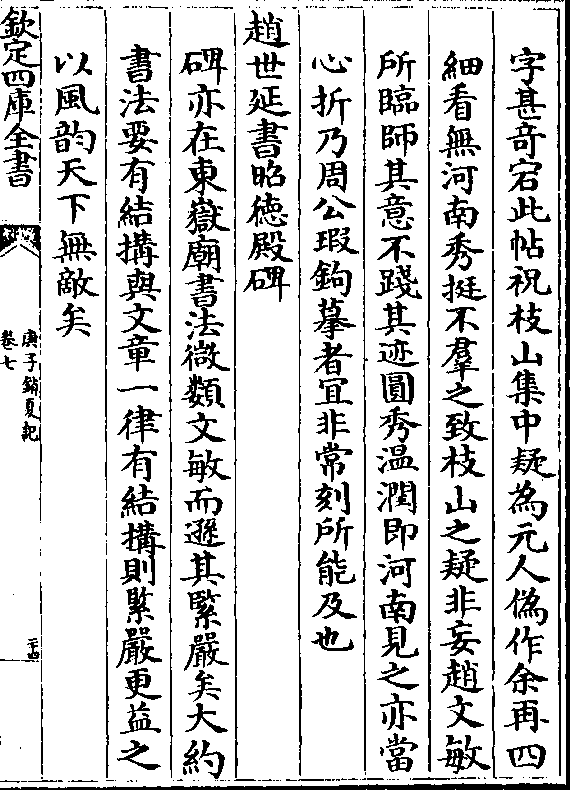 字甚竒宕此帖祝枝山集中疑為元人偽作余再四
細看無河南秀挺不羣之致枝山之疑非妄趙文敏
所臨師其意不踐其迹圓秀温潤即河南見之亦當
心折乃周公瑕鉤摹者宜非常刻所能及也
趙世延書昭德殿碑
碑亦在東嶽廟書法微類文敏而遜其緊嚴矣大約
書法要有結搆與文章一律有結搆則緊嚴更益之
以風韵天下無敵矣
欽定四庫全書
庚子銷夏記
卷七
二十四